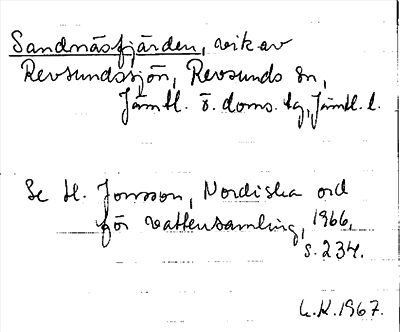 Sandnäsfjärden, vik av
Revsundssjön, Revsunds sn,
Jämtl. ö. doms. tg, Jämtl. l.
Se H. Jonsson, Nordiska ord
för vattensamling, 1966,
s. 234.
L.K. 1967.